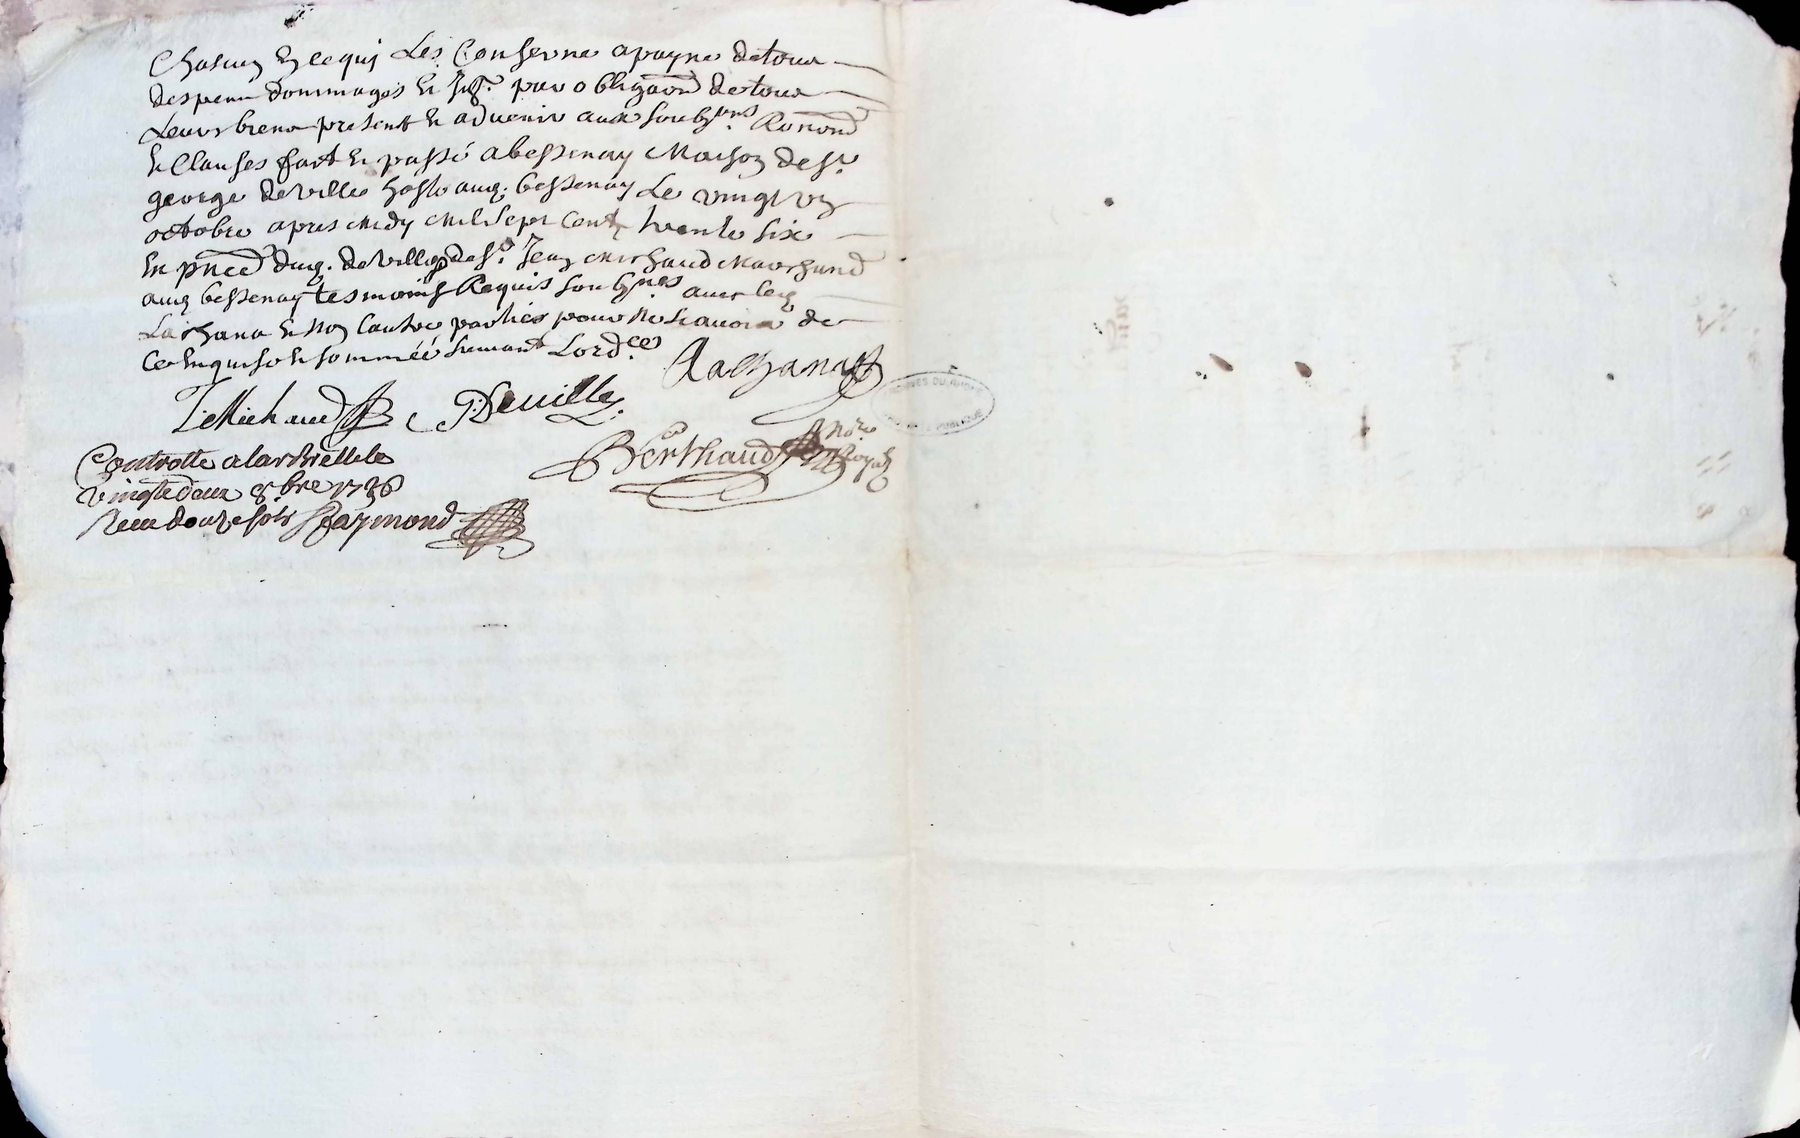 Chascun en ce quj Les Conserne a payne de tous
despens dommages et jnt. par obligaôn de tous
Leurs biens present et aduenir aux soubsns. Renonê
et Clauses fait et passé a bessenay Maison de sr.
george deville hoste aud. bessenay Le vingt un
octobre apres midy Mil sept Cent trente six
En pnce dud. deville et de sr. Jean Michaud Marchand
aud bessenay tesmoins Requis soubsnes auec led
Lachana et non Lautre parties pour ne scauoir de
Ce enquise et sommée suiuant Lordce
Lachana
J. Michaud G: Deuille
Berthaud Nore Royal
Controlle a larbrelle le
vingt deux 8bre 1736
Receu douze sols Raymond